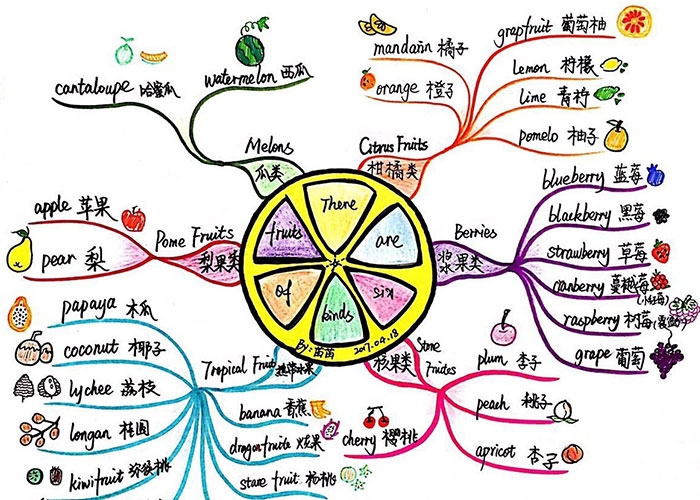 There
are
six
kinds
of
fruits
By:苗苗 2017.04.18
Melons
瓜类
cantaloupe 哈蜜瓜
watermelon 西瓜
Citrus Fruits
柑橘类
mandarin 橘子
orange 橙子
grapfruit 葡萄柚
lemon 柠檬
lime 青柠
pomelo 柚子
Berries
浆果类
blueberry 蓝莓
blackberry 黑莓
strawberry 草莓
canberry 蔓越莓
raspberry 树莓
grape 葡萄
Stone
Fruites
核果类
plum 李子
peach 桃子
apricot 杏子
cherry 樱桃
Tropical Fruit
热带水果
papaya 木瓜
coconut 椰子
lychee 荔枝
longan 桂圆
kiwifruit 猕猴桃
banana 香蕉
dragonfruite 火龙果
stare fruit 杨桃
Pome Fruits
梨果类
apple 苹果
pear 梨